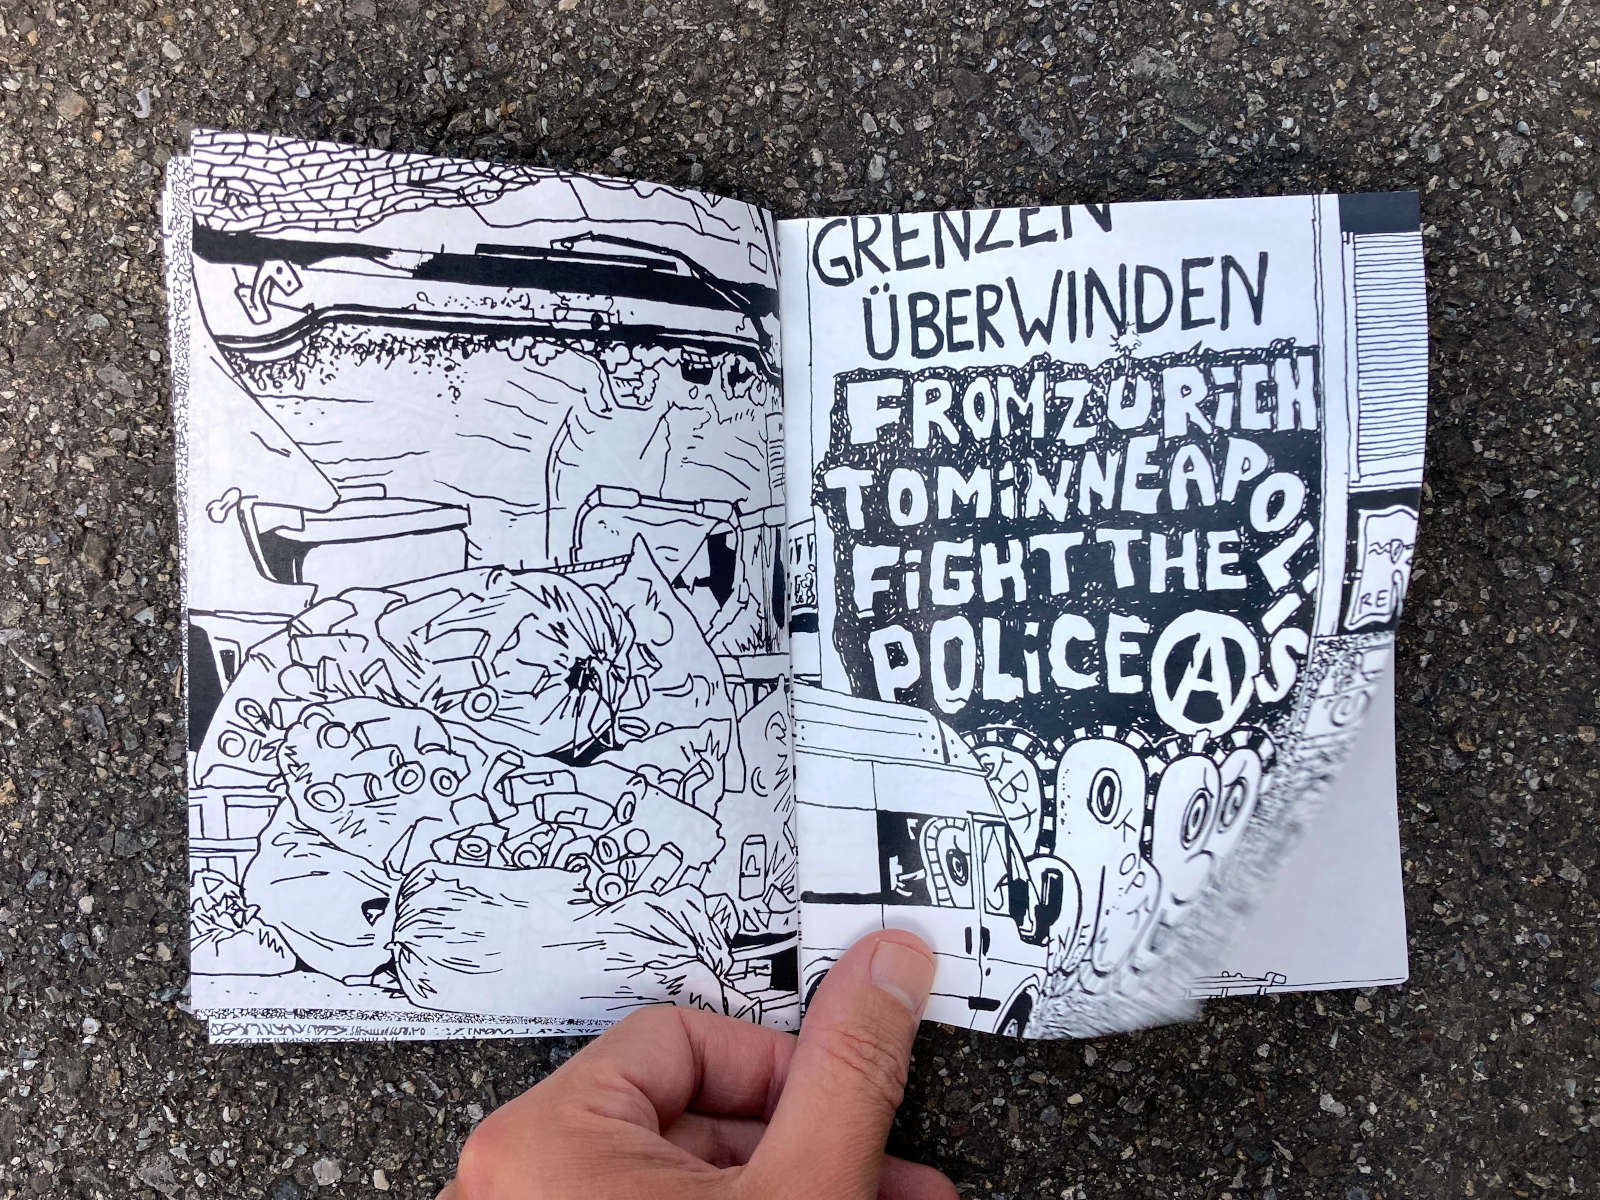 GRENZEN
ÜBERWINDEN
FROM ZURiCH
TO MiNNEAPOLIS
FiGHT THE
POLiCE
A
RE